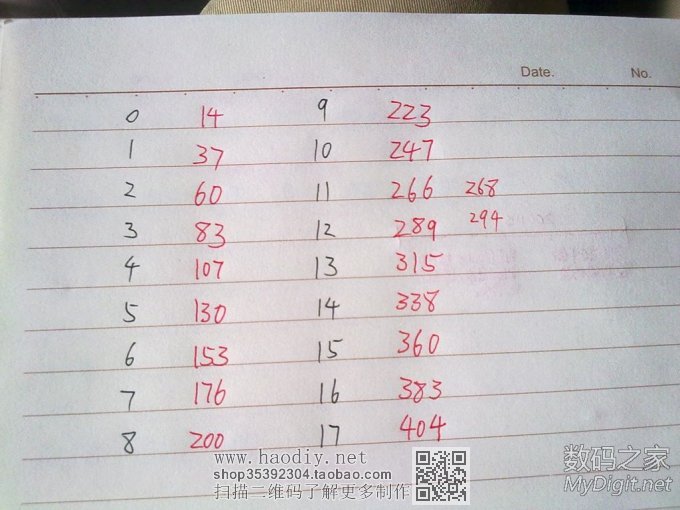 Date. No.
0 14 9 223
1 37 10 247
2 60 11 266 268
3 83 12 289 294
4 107 13 315
5 130 14 338
6 153 15 360
7 176 16 383
8 200 17 404
www.haodiy.net
shop35392304.taobao.com
扫描二维码了解更多制作
数码之家
MyDigit.net